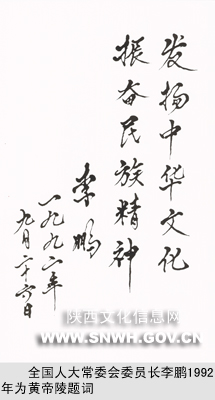 发扬中华文化
振奋民族精神
李鹏
一九九二年
九月二十六日
陕西文化信息网
WWW.SNWH.GOV.CN
全国人大常委会委员长李鹏1992
年为黄帝陵题词